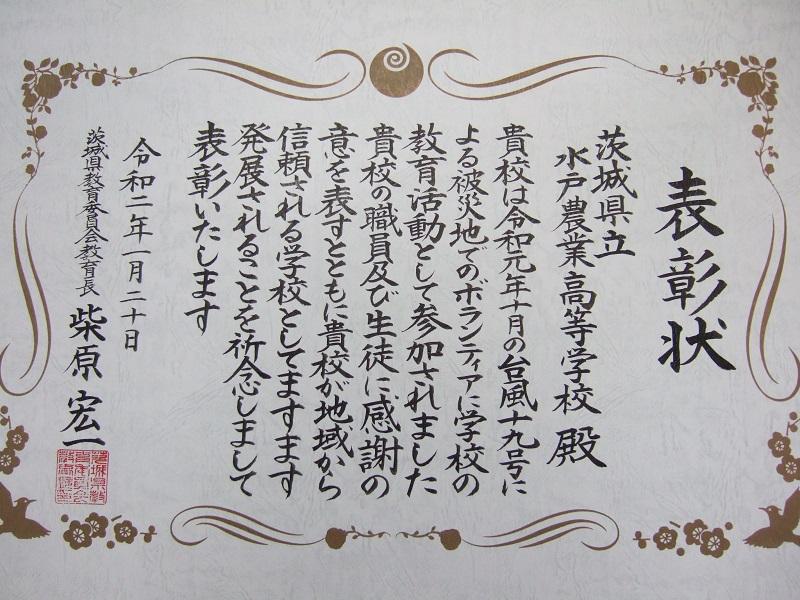 表彰状
茨城県立
水戸農業高等学校 殿
貴校は令和元年十月の台風十九号に
よる被災地でのボランティアに学校の
教育活動として参加されました
貴校の職員及び生徒に感謝の
意を表すとともに貴校が地域から
信頼される学校としてますます
発展されることを祈念しまして
表彰いたします
令和二年一月二十日
茨城県教育委員会教育長 柴原宏一